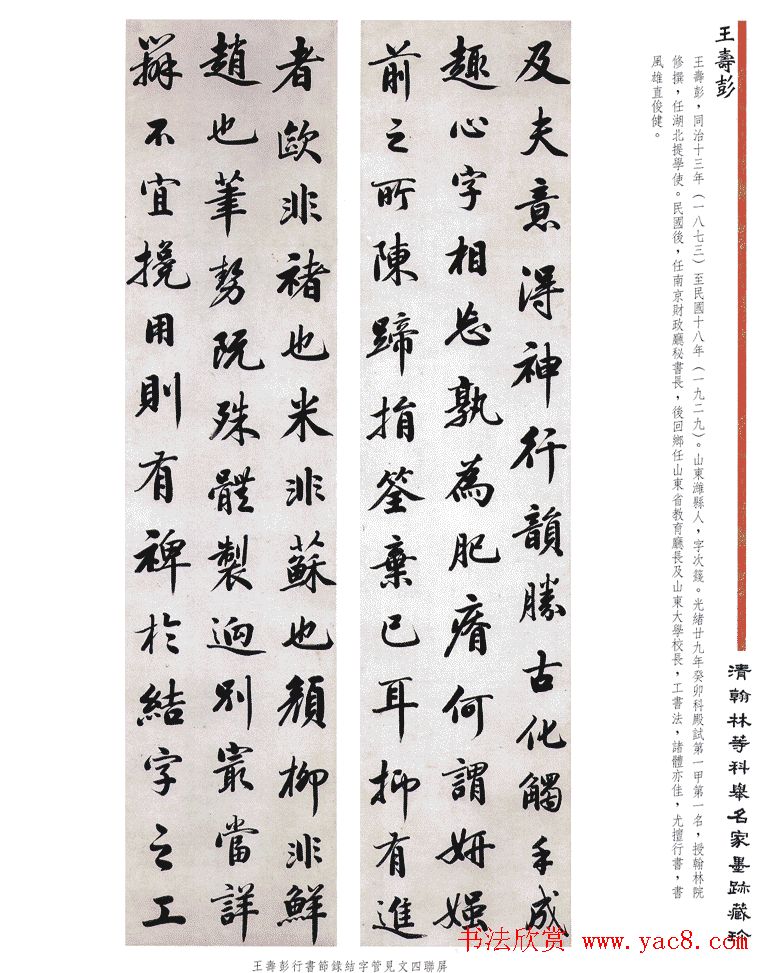 王壽彭
王壽彭，同治十三年（一八七三）至民國十八年（一九二九）。山東濰縣人，字次籛。光緒廿九年癸卯科殿試第一甲第一名，授翰林院
修撰，任湖北提學使。民國後，任南京財政廳秘書長，後回鄉任山東省教育廳長及山東大學校長，工書法，諸體亦佳，尤擅行書，書
風雄直俊健。
清翰林等科舉名家墨跡藏珍
及夫意得神行韻勝古化觸手成
趣心字相忘孰為肥瘠何謂妍媸
前之所陳蹄捐筌棄已耳抑有進
者歐非褚也米非蘇也顏柳非鮮
趙也筆勢既殊體製迥別最當詳
辨不宜攙用則有裨於結字之工
王壽彭行書節錄結字管見文四聯屏
书法欣赏 www.yac8.com